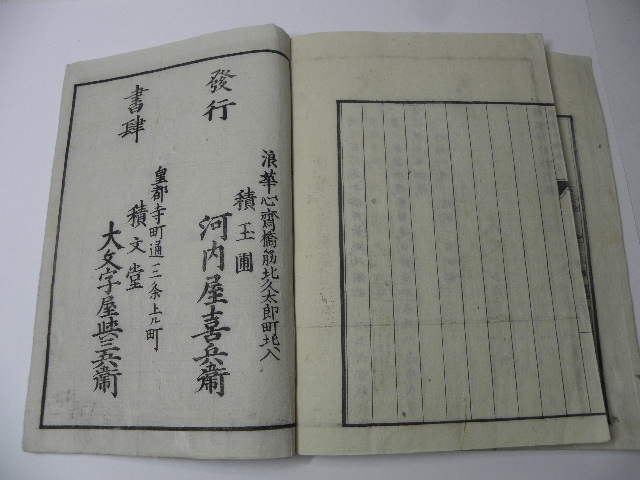 發行
書肆
浪華心齋橋筋北久太郎町北入
積玉圃
河内屋喜兵衞
皇都寺町通二条上ル町
積文堂
大文字屋與三兵衞